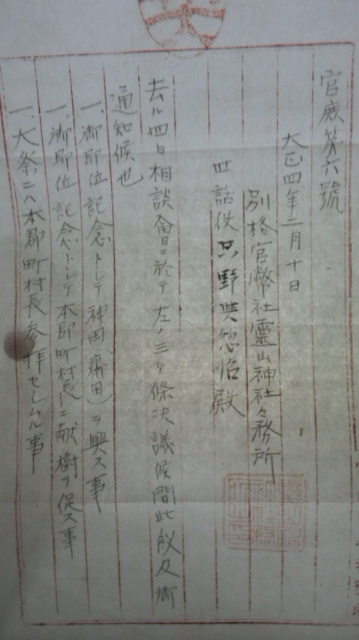 官庶第六號
大正四年二月十日
別格官幣社靈山神社々務所
世話役只野與惣治殿
去ル四日相談會ニ於テ左ノ三ケ條决議候間此段及御
通知候也
一、御即位記念トシテ神田(齋田)ヲ興ス事
一、御即位記念トシテ本郡町村長ニ献樹ヲ促ス事
一、大祭ニハ本郡町村長參拝セシムル事